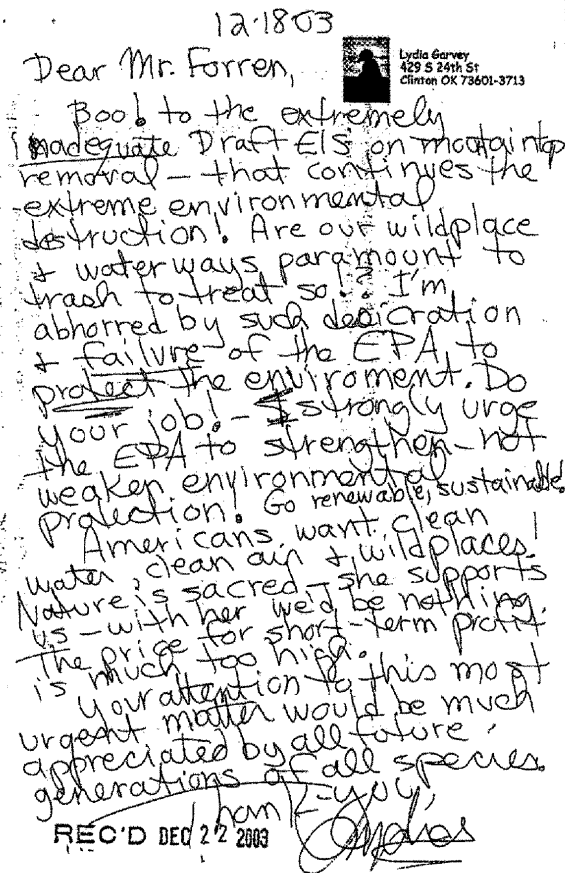 12-18-03
Dear Mr. Forren,
Lydia Garvey
429 S 24th St
Clinton OK 73601-3713
Boo! to the extremely
inadequate Draft EIS on mountaintop
removal - that continues the
extreme environmental
destruction! Are our wildplace
& waterways paramount to
trash to treat so!? I'm
abhorred by such desicration
& failure of the EPA to
protect the enviroment. Do
your job! - I strongly urge
the EPA to strengthen - not
weaken environmental
protection! Go renewable, sustainable!
Americans want clean
water, clean air & wildplaces!
Nature is sacred - she supports
us - with her we'd be nothing.
The price for short-term profit
is much too high.
Your attention to this most
urgent matter would be much
appreciated by all future
generations of all species.
Thank-you,
REC'D DEC 22 2003